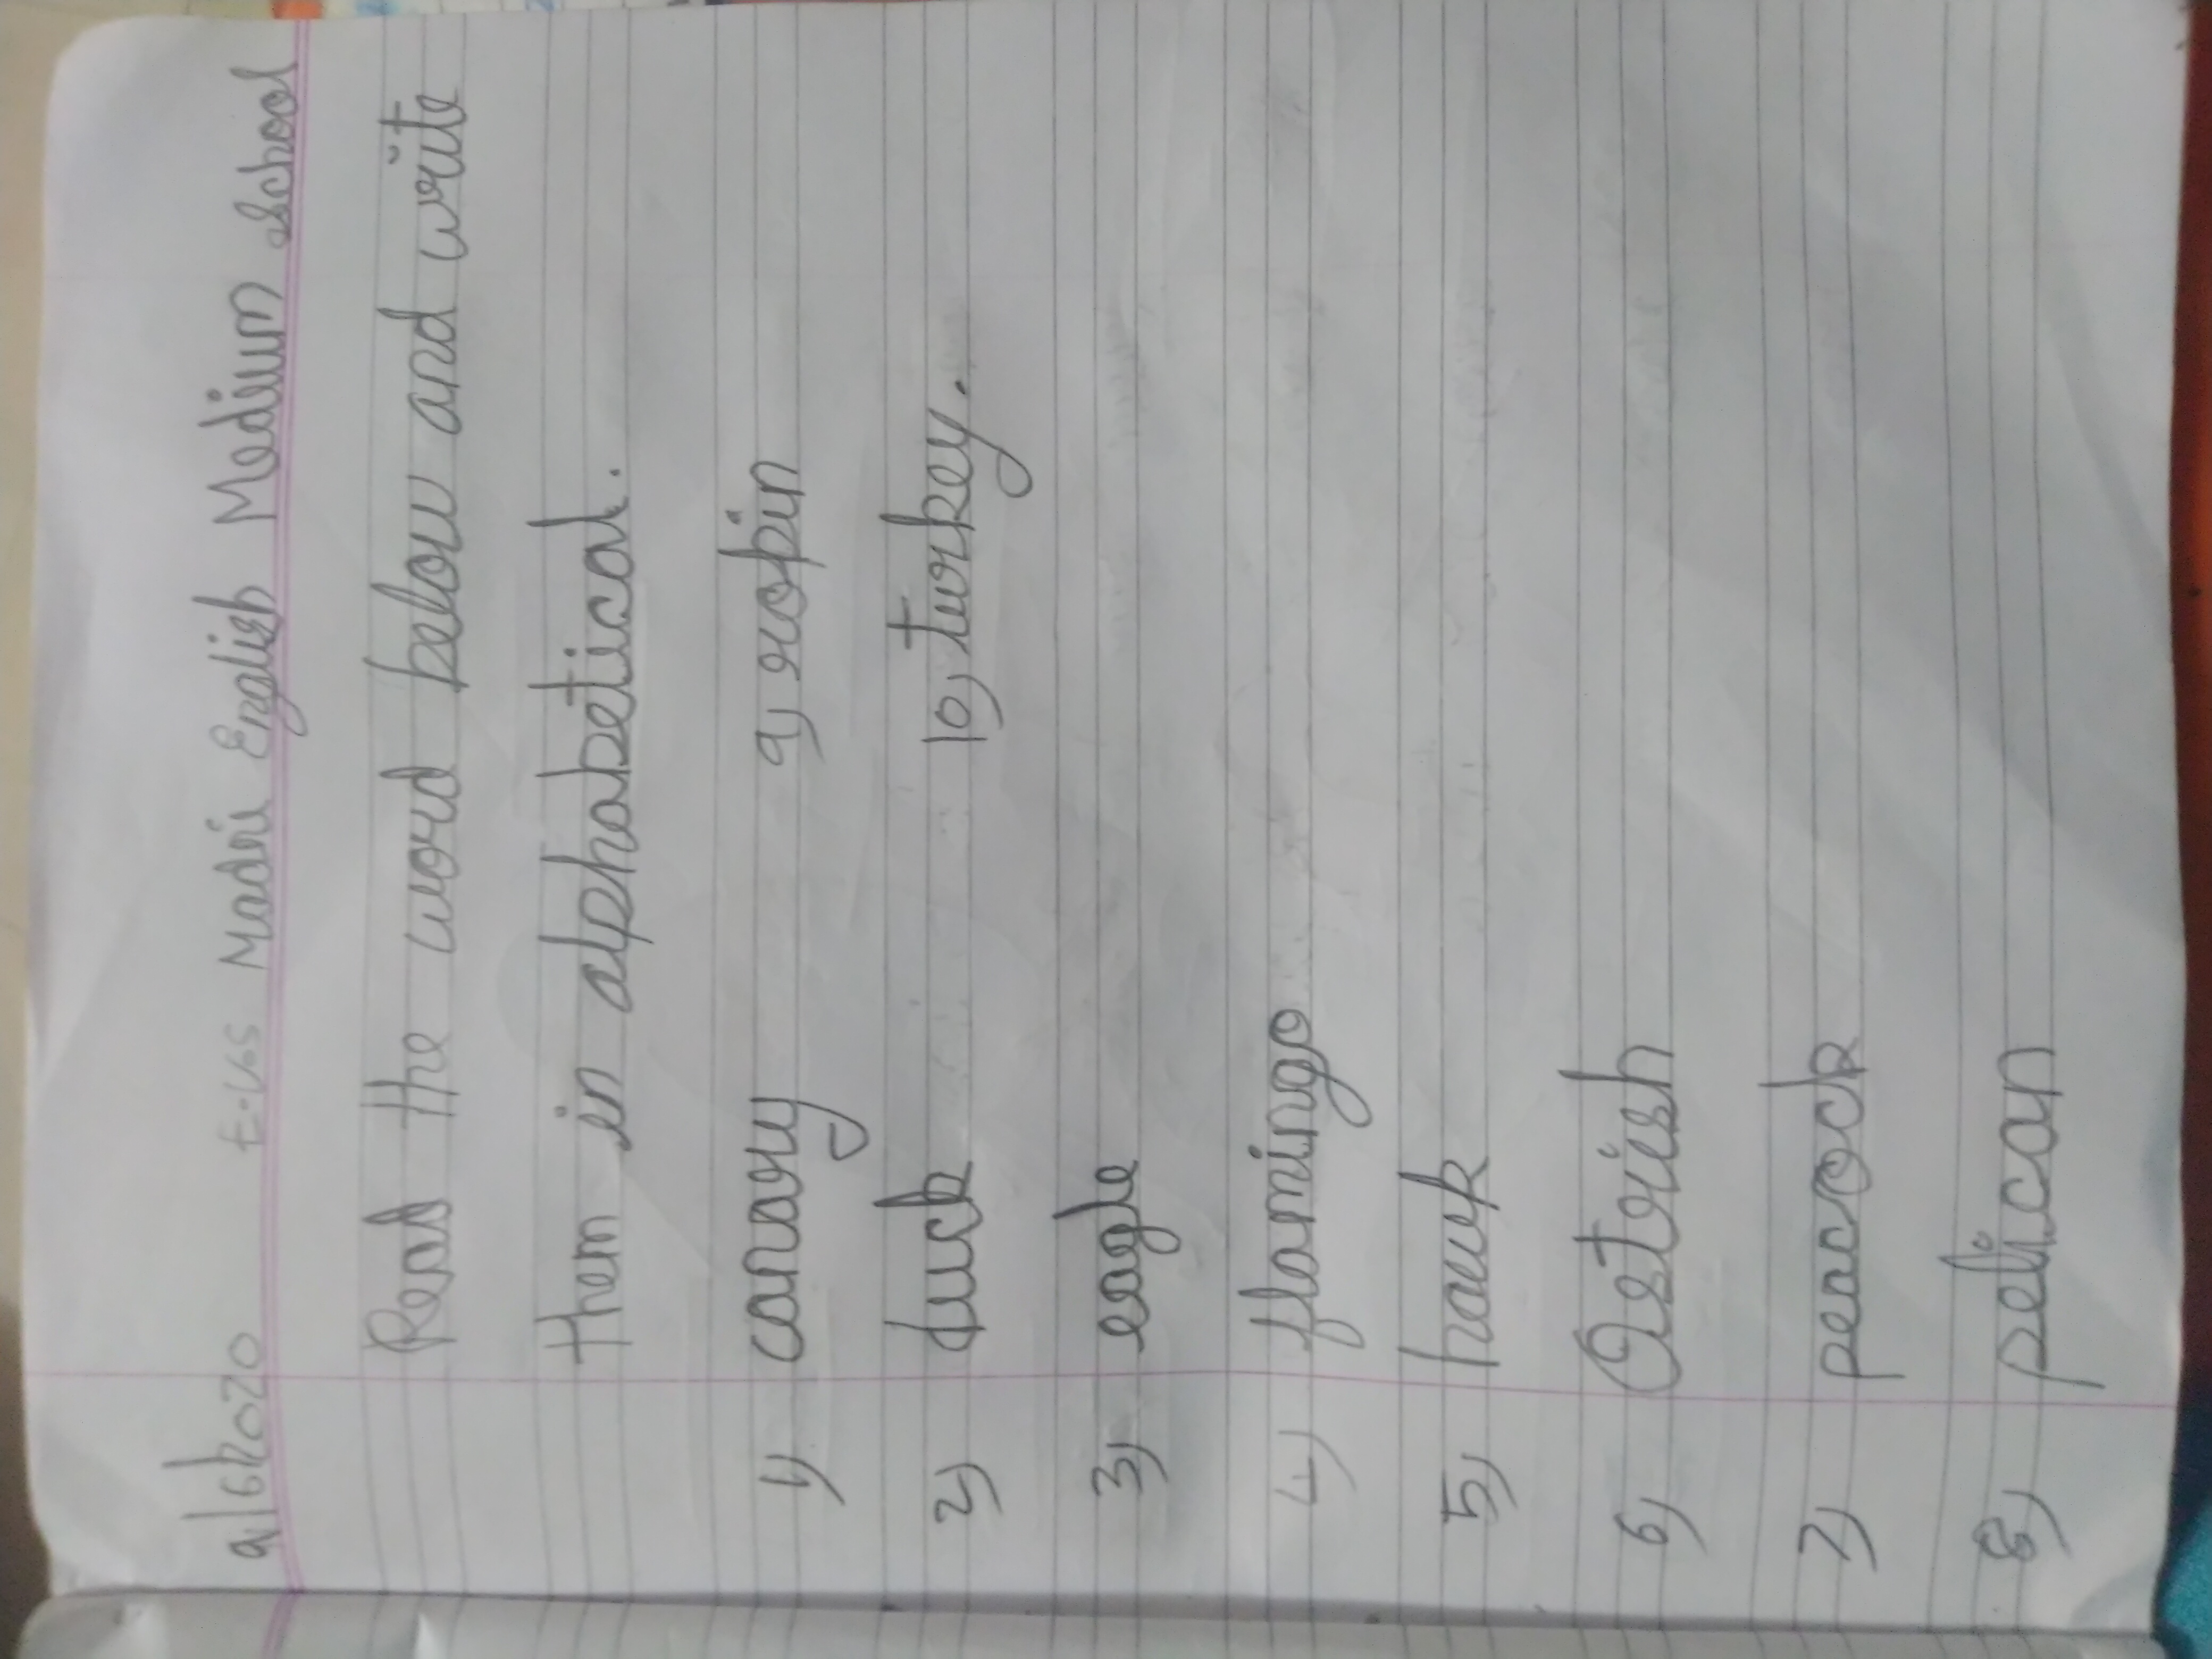 9/6/2020 E.V.S Madni English Medium School
Read the word below and write
them in alphabetical.
1) canary 9) robin
2) duck 10) turkey.
3) eagle
4) flamingo
5) hawk
6) Ostrish
7) peacock
8) pelican